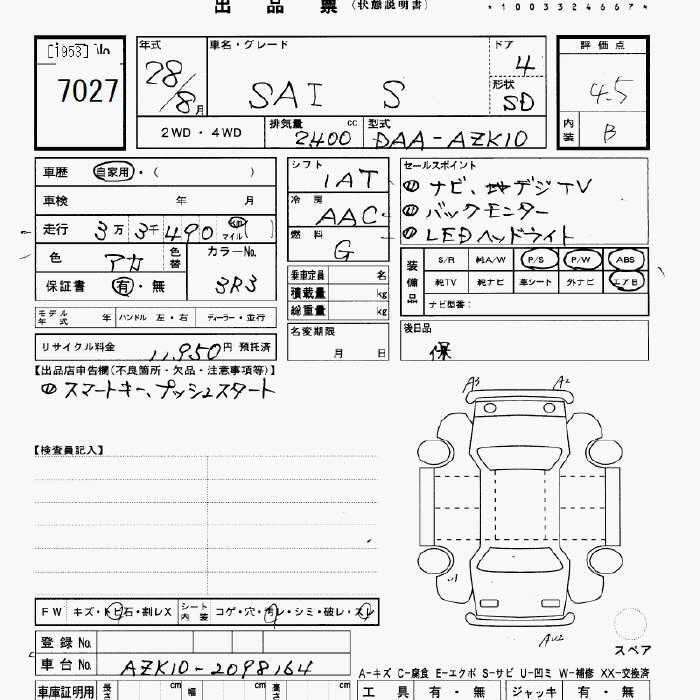 出 品 票 (状態説明書)
*1003324667*
[1953] No
7027
年式
28/8月
車名・グレード
SAI S
ドア
4
形状
SD
評価点
4.5
内装
B
2WD・4WD
排気量 cc
2400
型式
DAA-AZK10
車歴 自家用・( )
車検 年 月
走行 3万 3千 490 km マイル( )
色 アカ 色替 カラーNo.
保証書 有・無 3R3
モデル年式 年 ハンドル 左・右 ディーラー・並行
リサイクル料金 11,950円 預託済
シフト
IAT
冷房
AAC
燃料
G
乗車定員 名
積載量 kg
総重量 kg
名変期限
月 日
セールスポイント
① ナビ、地デジTV
② バックモニター
③ LEDヘッドライト
装備品
S/R 純A/W P/S P/W ABS
純TV 純ナビ 車シート 外ナビ エアB
ナビ型番:
後日品
保
【出品店申告欄(不良箇所・欠品・注意事項等)】
① スマートキー、プッシュスタート
【検査員記入】
A3 A2
AU2
スペア
FW キズ・トビ石・割レX シート内装 コゲ・穴・汚レ・シミ・破レ・スレ
登録 No.
車台 No. AZK10-2098164
A-キズ C-腐食 E-エクボ S-サビ U-凹ミ W-補修 XX-交換済
車庫証明用 長さ cm 幅 cm 高さ cm
工具 有・無 ジャッキ 有・無